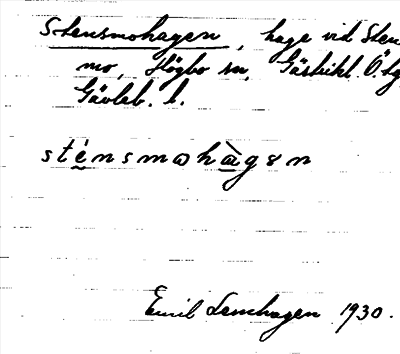 Stensmohagen, hage vid Sten
mo, Högbo sn, Gästrikl. Ö. tg
Gävleb. l.
sténsmωhàgən
Emil Lenhagen 1930.